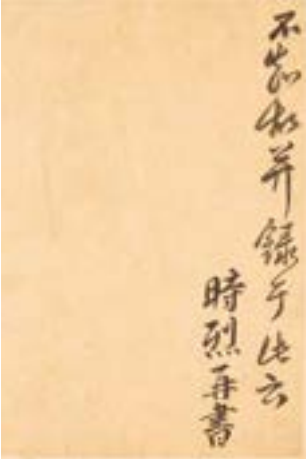 不故并錄于此云
時烈再書